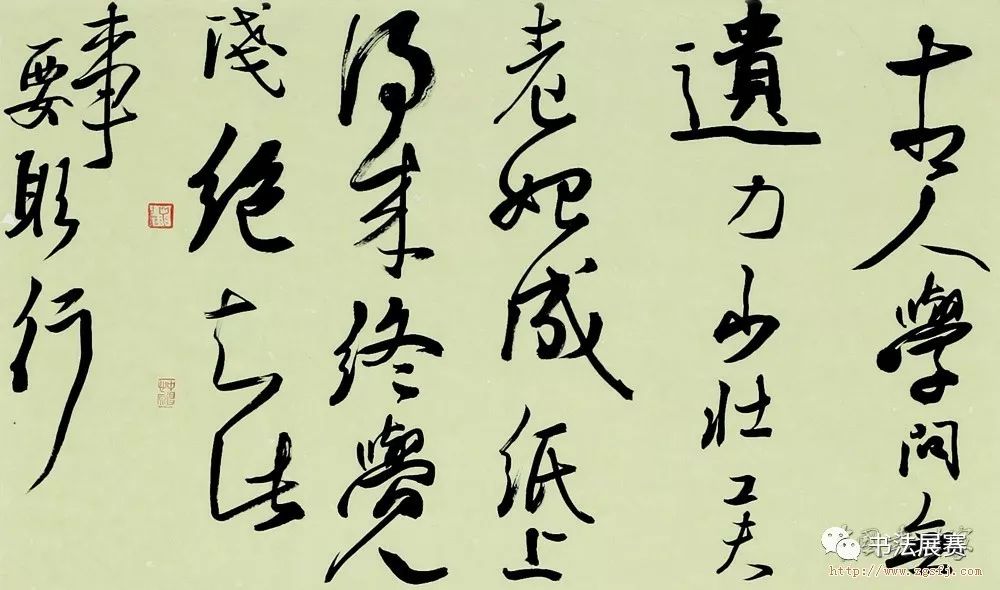 古人學問無
遺力少壯工夫
老始成紙上
得來終覺
淺絕知此
事
要躬行
书法展赛
http://www.zgsfj.com